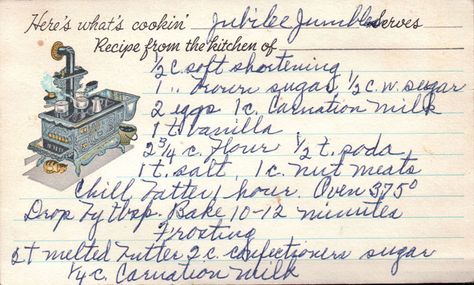 Here's what's cookin' Jubilee Jumbles Serves
Recipe from the kitchen of
½ c. soft shortening,
1 " brown sugar, ½ c. w. sugar
2 eggs 1 c. Carnation Milk
1 t. vanilla
2 ¾ c. Flour ½ t. soda
1 t. salt, 1 c. nut meats
Chill batter 1 hour. Oven 375°
Drop by tbsp. Bake 10-12 minutes
Frosting
2 c. confectioners sugar
melted butter
¼ c. Carnation milk